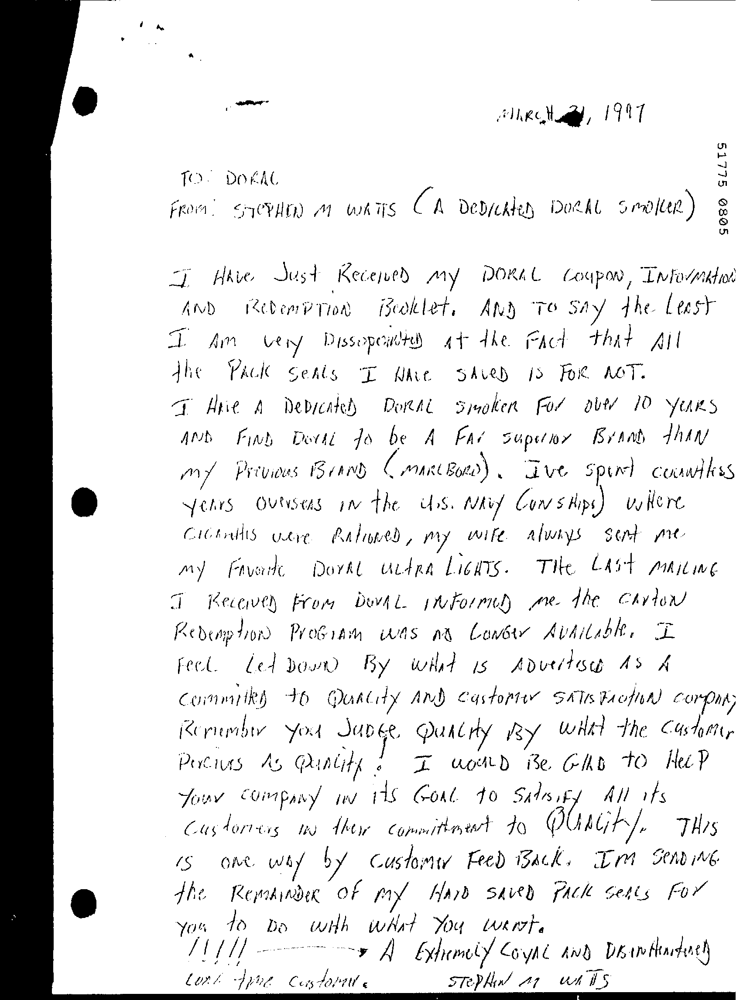 MARCH 31, 1997
51775 0805
TO: DORAL
FROM: STEPHEN M WATTS (A DEDICATED DORAL SMOKER)
I HAVE JUST RECEIVED MY DORAL COUPON, INFORMATION
AND REDEMPTION BOOKLET. AND TO SAY the LEAST
I AM VERY DISSOPOINTED AT the FACT that All
the PACK SEALS I HAVE SAVED IS FOR NOT.
I HAVE A DEDICATED DORAL SMOKER FOR OVER 10 YEARS
AND FIND DORAL to be A FAR SUPERIOR BRAND thAN
MY PREVIOUS BRAND (MARLBORO). IVE SPENT COUNTLESS
YEARS OVERSEAS IN the U.S. NAVY (ON SHIPS) WHERE
CIGARETTES WERE RATIONED, MY WIFE ALWAYS SENT ME
MY FAVORITE DORAL ULTRA LIGHTS. THE LAST MAILING
I RECEIVED FROM DORAL INFORMED ME the CARTON
REDEMPTION PROGRAM WAS NO LONGER AVAILABLE. I
FEEL LET DOWN BY WHAT IS ADVERTISED AS A
COMMITTED to QUALITY AND CUSTOMER SATISFACTION COMPANY
REMEMBER YOU JUDGE QUALITY BY WHAT the CUSTOMER
PERCIVES AS QUALITY! I WOULD BE GLAD TO HELP
YOUR COMPANY IN ITS GOAL TO SATISIFY All its
CUSTOMERS IN their COMMITTMENT to QUALITY. THIS
IS ONE WAY by CUSTOMER FEED BACK. IM SENDING
the REMAINDER OF MY HARD SAVED PACK SEALS FOR
YOU to DO WITH WHAT YOU WANT.
!!!!! → A EXTREMELY LOYAL AND DISINHEARTENED
LONG time CUSTOMER. STEPHEN M WATTS